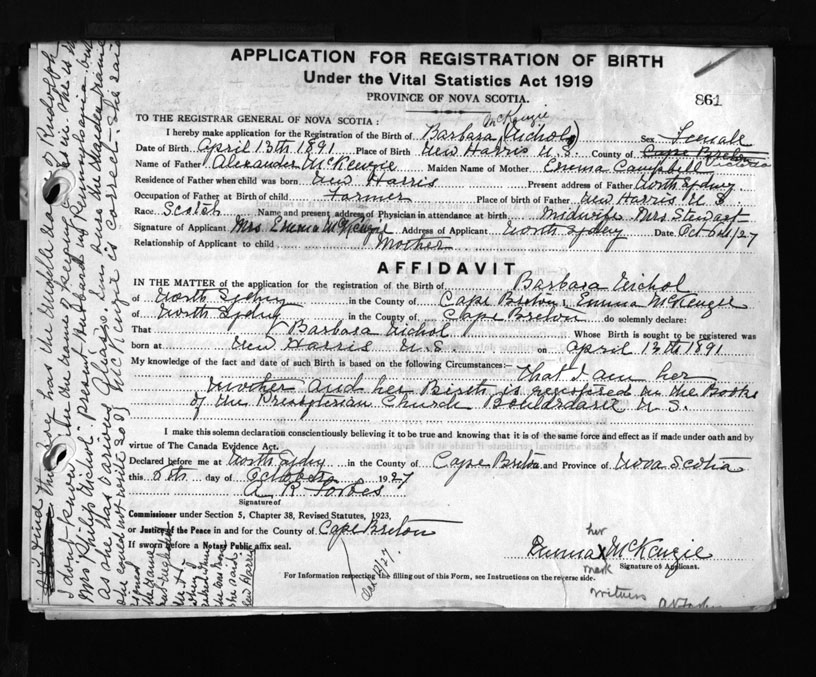 APPLICATION FOR REGISTRATION OF BIRTH
Under the Vital Statistics Act 1919
PROVINCE OF NOVA SCOTIA.
861
TO THE REGISTRAR GENERAL OF NOVA SCOTIA:
McKenzie
I hereby make application for the Registration of the Birth of Barbara Nichol Sex Female
Date of Birth April 13th 1891 Place of Birth New Harris N.S. County of Cape Breton Victoria
Name of Father Alexander McKenzie Maiden Name of Mother Emma Campbell
Residence of Father when child was born New Harris Present address of Father North Sydney
Occupation of Father at Birth of child Farmer Place of birth of Father New Harris N.S.
Race Scotch Name and present address of Physician in attendance at birth Midwife Mrs Stewart
Signature of Applicant Mrs. Emma McKenzie Address of Applicant North Sydney Date Oct 27
Relationship of Applicant to child Mother
AFFIDAVIT
IN THE MATTER of the application for the registration of the Birth of Barbara Nichol
of North Sydney in the County of Cape Breton I, Emma McKenzie
of North Sydney in the County of Cape Breton do solemnly declare:
That Barbara Nichol Whose Birth is sought to be registered was
born at New Harris N.S. on April 13th 1891
My knowledge of the fact and date of such Birth is based on the following Circumstances:- That I am her
mother and her Birth is on the Books
of the Presbyterian Church Boulardarie N.S.
I make this solemn declaration conscientiously believing it to be true and knowing that it is of the same force and effect as if made under oath and by
virtue of The Canada Evidence Act.
Declared before me at North Sydney in the County of Cape Breton and Province of Nova Scotia
this day of October 1927
A R Forbes
Signature of
Commissioner under Section 5, Chapter 38, Revised Statutes, 1923,
or Justice of the Peace in and for the County of Cape Breton
If sworn before a Notary Public affix seal.
her
Emma X McKenzie
mark Signature of Applicant.
For Information respecting the filling out of this Form, see Instructions on the reverse side.
witness
I find the
has the middle name of Rudolph
I don't know
in the name of
Mrs "Philip Nichol" present husband in Pennsylvania but
as she has various Aliases. Em was the Maiden name
McKenzie is correct. She said
she could not write so